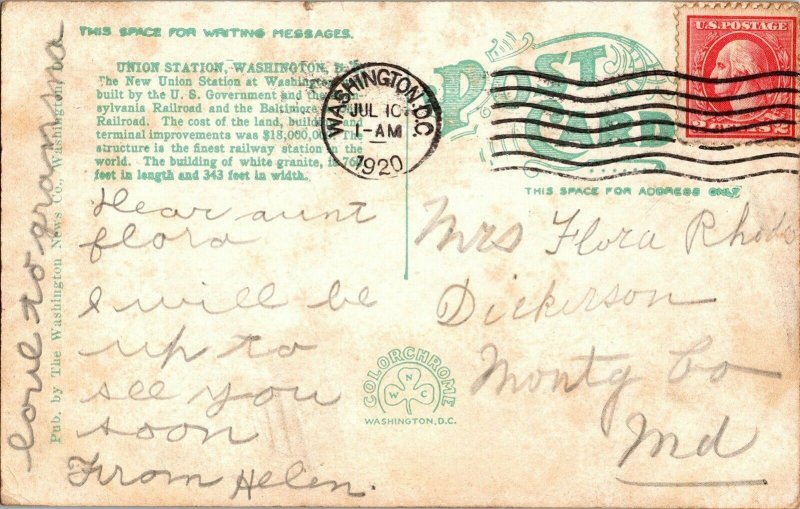 THIS SPACE FOR WRITING MESSAGES.
UNION STATION, WASHINGTON,
The New Union Station at Washington
built by the U. S. Government and the
sylvania Railroad and the Baltimore
Railroad. The cost of the land, building and
terminal improvements was $18,000,000. The
structure is the finest railway station in the
world. The building of white granite, is 760
feet in length and 343 feet in width.
Dear aunt
flora
I will be
up to
see you
soon
From Helen.
love to gramma
Pub. by The Washington News Co., Washington
WASHINGTON, D.C.
JUL 10
1-AM
1920
POST
CARD
THIS SPACE FOR ADDRESS ONLY
U.S. POSTAGE
2 CENTS 2
Mrs Flora Rhodes
Dickerson
Montg Co
Md
COLORCHROME
W N C
WASHINGTON, D.C.